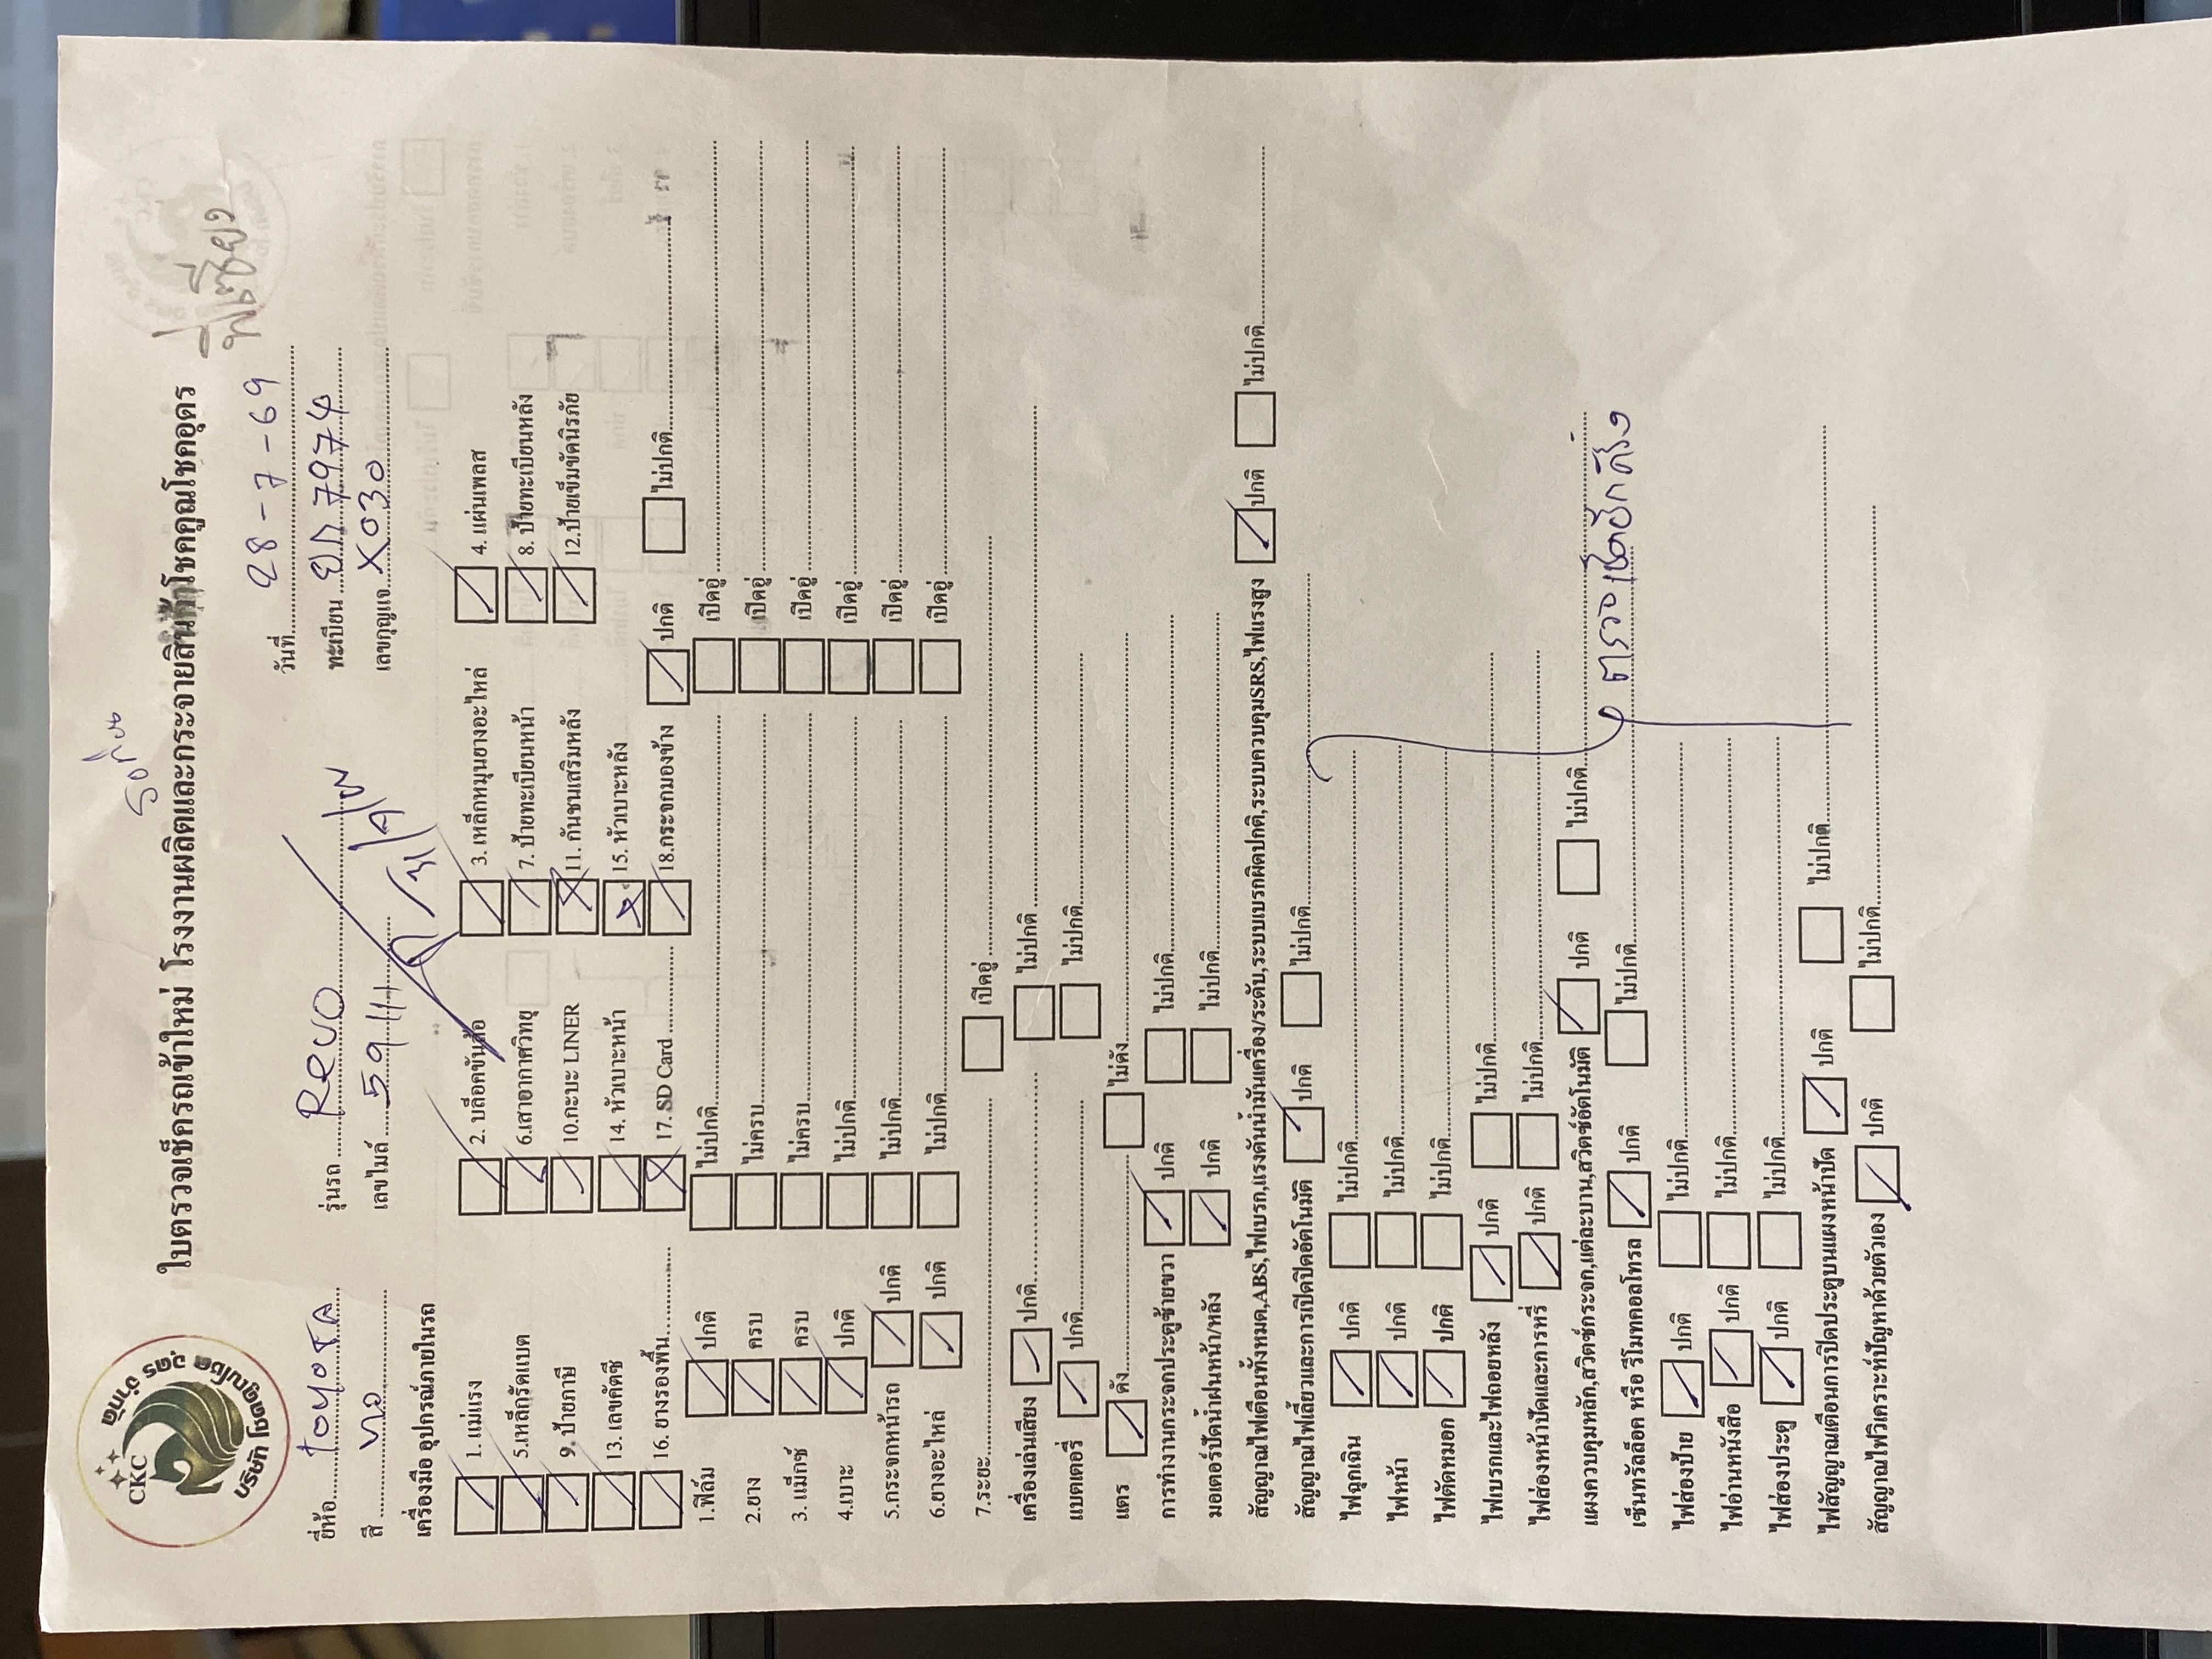 CKC
บริษัท โชคคูณโชค อุดร จำกัด
ใบตรวจเช็ครถเข้าใหม่ โรงงานผลิตและกระจายสินค้าโชคคูณโชคอุดร
วันที่ 28-7-69
ยี่ห้อ TOYOTA รุ่นรถ REVO ทะเบียน 7974
สี เลขไมล์ 59111 เลขกุญแจ X030
เครื่องมือ อุปกรณ์ภายในรถ
1. แม่แรง 2. บล็อคขันล้อ 3. เหล็กหมุนยางอะไหล่ 4. แผ่นเพลส
5.เหล็กรัดเบต 6.เสาอากาศวิทยุ 7. ป้ายทะเบียนหน้า 8. ป้ายทะเบียนหลัง
9. ป้ายภาษี 10.กะบะ LINER 11. กันชนเสริมหลัง 12.ป้ายเข็มขัดนิรภัย
13. เลขคัตซี 14. หัวเบาะหน้า 15. หัวเบาะหลัง
16. ยางรองพื้น 17. SD Card 18.กระจกมองข้าง ปกติ ไม่ปกติ
1.ฟิล์ม ปกติ ไม่ปกติ เปิดอู่
2.ยาง ครบ ไม่ครบ เปิดอู่
3. แม็กซ์ ครบ ไม่ครบ เปิดอู่
4.เบาะ ปกติ ไม่ปกติ เปิดอู่
5.กระจกหน้ารถ ปกติ ไม่ปกติ เปิดอู่
6.ยางอะไหล่ ปกติ ไม่ปกติ เปิดอู่
7.ระยะ เปิดอู่
เครื่องเล่นเสียง ปกติ ไม่ปกติ
แบตเตอรี่ ปกติ ไม่ปกติ
แตร ดัง ไม่ดัง
การทำงานกระจกประตูซ้ายขวา ปกติ ไม่ปกติ
มอเตอร์ปัดน้ำฝนหน้า/หลัง ปกติ ไม่ปกติ
สัญญาณไฟเตือนทั้งหมด,ABS,ไฟเบรก,แรงดันน้ำมันเครื่อง/ระดับ,ระบบเบรกผิดปกติ,ระบบควบคุมSRS,ไฟแรงสูง ปกติ ไม่ปกติ
สัญญาณไฟเลี้ยวและการเปิดปิดอัตโนมัติ ปกติ ไม่ปกติ
ไฟฉุกเฉิน ปกติ ไม่ปกติ
ไฟหน้า ปกติ ไม่ปกติ
ไฟตัดหมอก ปกติ ไม่ปกติ
ไฟเบรกและไฟถอยหลัง ปกติ ไม่ปกติ
ไฟส่องหน้าปัดและการหรี่ ปกติ ไม่ปกติ
แผงควบคุมหลัก,สวิตซ์กระจก,แต่ละบาน,สวิตซ์อัตโนมัติ ปกติ ไม่ปกติ
เซ็นทรัลล็อค หรือ รีโมทคอลโทรล ปกติ ไม่ปกติ ตรวจเช็คอีกครั้ง
ไฟส่องป้าย ปกติ ไม่ปกติ
ไฟอ่านหนังสือ ปกติ ไม่ปกติ
ไฟส่องประตู ปกติ ไม่ปกติ
ไฟสัญญาณเตือนการปิดประตูบนแผงหน้าปัด ปกติ ไม่ปกติ
สัญญาณไฟวิเคราะห์ปัญหาด้วยตัวเอง ปกติ ไม่ปกติ